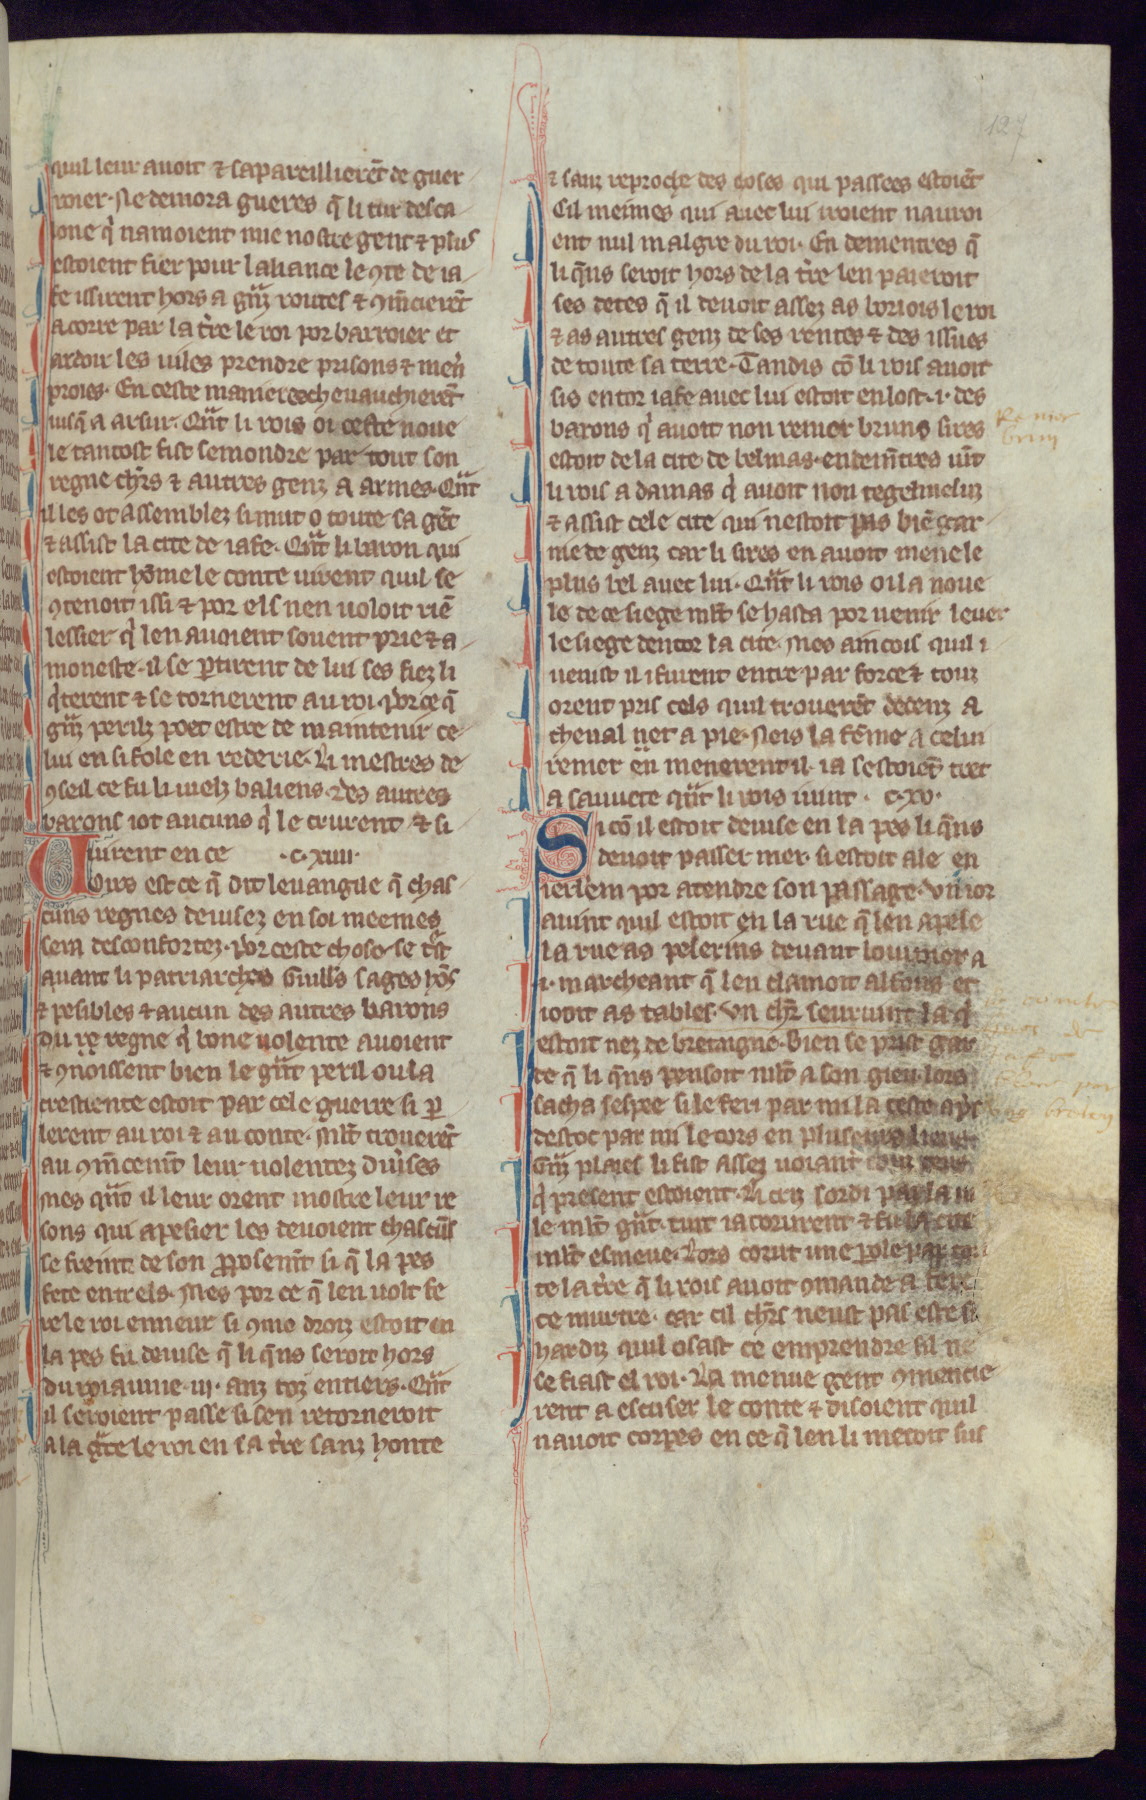 quil leur avoit ⁊ sapareillierēt de guer
roier. Ne demora gueres q̄ li tur desca
lone q̇ namoient mie nostre gent ⁊ plus
estoient fier pour laliance le ꝯte de ia
fe issirent hors a gn̄z routes ⁊ ꝯm̄cierēt
a corre par la t̄re le roi por barroier et
ardoir les viles prendre prisons ⁊ men̄
proies. En ceste maniere chevauchierēt
iusq̄ a arsur. Qn̄t li rois oi ceste nove
le tantost fist semondre par tout son
regne chr̄s ⁊ autres genz a armes. Qn̄t
il les ot assemblez si mut o toute sa gēt
⁊ assist la cite de iafe. Qn̄t li baron qui
estoient hōme le conte virent quil se
ꝯtenoit issi ⁊ por els nen voloit riē
lessier q̇ len avoient sovent prie ⁊ a
moneste. il se ꝑtirent de lui ses fiez li
q̇terent ⁊ se tornerent au roi. Por ce q̄
gn̄z perilz poet estre de maintenir ce
lui en si fole en rederie. Li mestres de
ꝯseil ce fu li vielz baliens. Des autres
barons iot aucuns q̇ le crurent ⁊ si
virent en ce .c.xiiii.
Voirs est ce q̄ dit levangile q̄ chas
cuns regnes devisez en soi meemes
sera desconfortez. Por ceste chose se t̄st
avant li patriarches Guill's sages hōs
⁊ pesibles ⁊ aucun des autres barons
du re regne q̇ bone volente avoient
⁊ ꝯnoissent bien le gn̄t peril ou la
crestiente estoit par cele guerre si ꝑ
lerent au roi ⁊ au conte. Ml't troverēt
au ꝯm̄cem̄t leur volentez div̄ses
mes qn̄t il leur orent mostre leur re
sons qui apesier les devoient chascūs
se freint de son p̄posem̄t si q̄ la pes
fete entrels. Mes por ce q̄ len volt fe
re le roi enneur si ꝯme droiz estoit en
la pes fu devise q̄ li q̄ns seroit hors
du roiaume .iii. anz toz entiers. Qn̄t
il seroient passe si sen retorneroit
a la gr̄ce le roi en sa t̄re sanz honte
⁊ sanz reproche des coses qui passees estoiēt
Cil meimes qui avec lui iroient nauroi
ent nul malgre du roi. En dementres q̄
li q̄ns seroit hors de la t̄re len paieroit
ses detes q̄ il devoit assez as boriois le roi
⁊ as autres genz de ses rentes ⁊ des issues
de toute sa terre. Tandis cō li rois avoit
sis entor iafe avec lui estoit en lost .i. des
barons q̇ avoit non renier bruns sires
estoit de la cite de belmas. endem̄tres vīt
li rois a damas q̇ avoit non tegelmeluz
⁊ assist cele cite qui nestoit pas biē gar
nie de genz car li sires en avoit mene le
plus bel avec lui. Qn̄t li rois oi la nove
le de ce siege ml't se hasta por venir lever
le siege dentor la cite. Mes aincois quil i
venist il i furent entre par force ⁊ touz
orent pris cels quil troverēt dedenz a
cheval ⁊ a pie. Neis la fēme a celui
renier en menerent il. ia sestoiēt tret
a sauvete qn̄t li rois vint. c.xv.
Si cō il estoit devise en la pes li q̄ns
devoit passer mer. si estoit ale en
ierl'em por atendre son passage. Vn ior
avint quil estoit en la rue q̄ len apele
la rue as pelerins devant louvreor a
.i. marcheant q̄ len clamoit alfons et
iooit as tables. Vn chr̄ seurvint la q̇
estoit nez de bretaigne. Bien se prist gar
de q̄ li q̄ns pensoit ml't a son gieu. lors
sacha sespee si le feri par mi la teste ap̄s
destoc par mi le cors en pluseurs lieus
Gn̄z plaies li fist assez voiant touz ceus
q̇ present estoient. Li criz sordi par la vi
le ml't gn̄t. tuit i acorurent ⁊ fu la cite
ml't esmeue. Lors corut une ꝑole par tou
te la t̄re q̄ li rois avoit ꝯmande a fere
ce murtre. car cil chr̄s neust pas este si
hardiz quil osast ce emprendre sil ne
se fiast el roi. La menue gent ꝯmencie
rent a escuser le conte ⁊ disoient quil
navoit corpes en ce q̄ len li metoit sus
127
Renier
brun